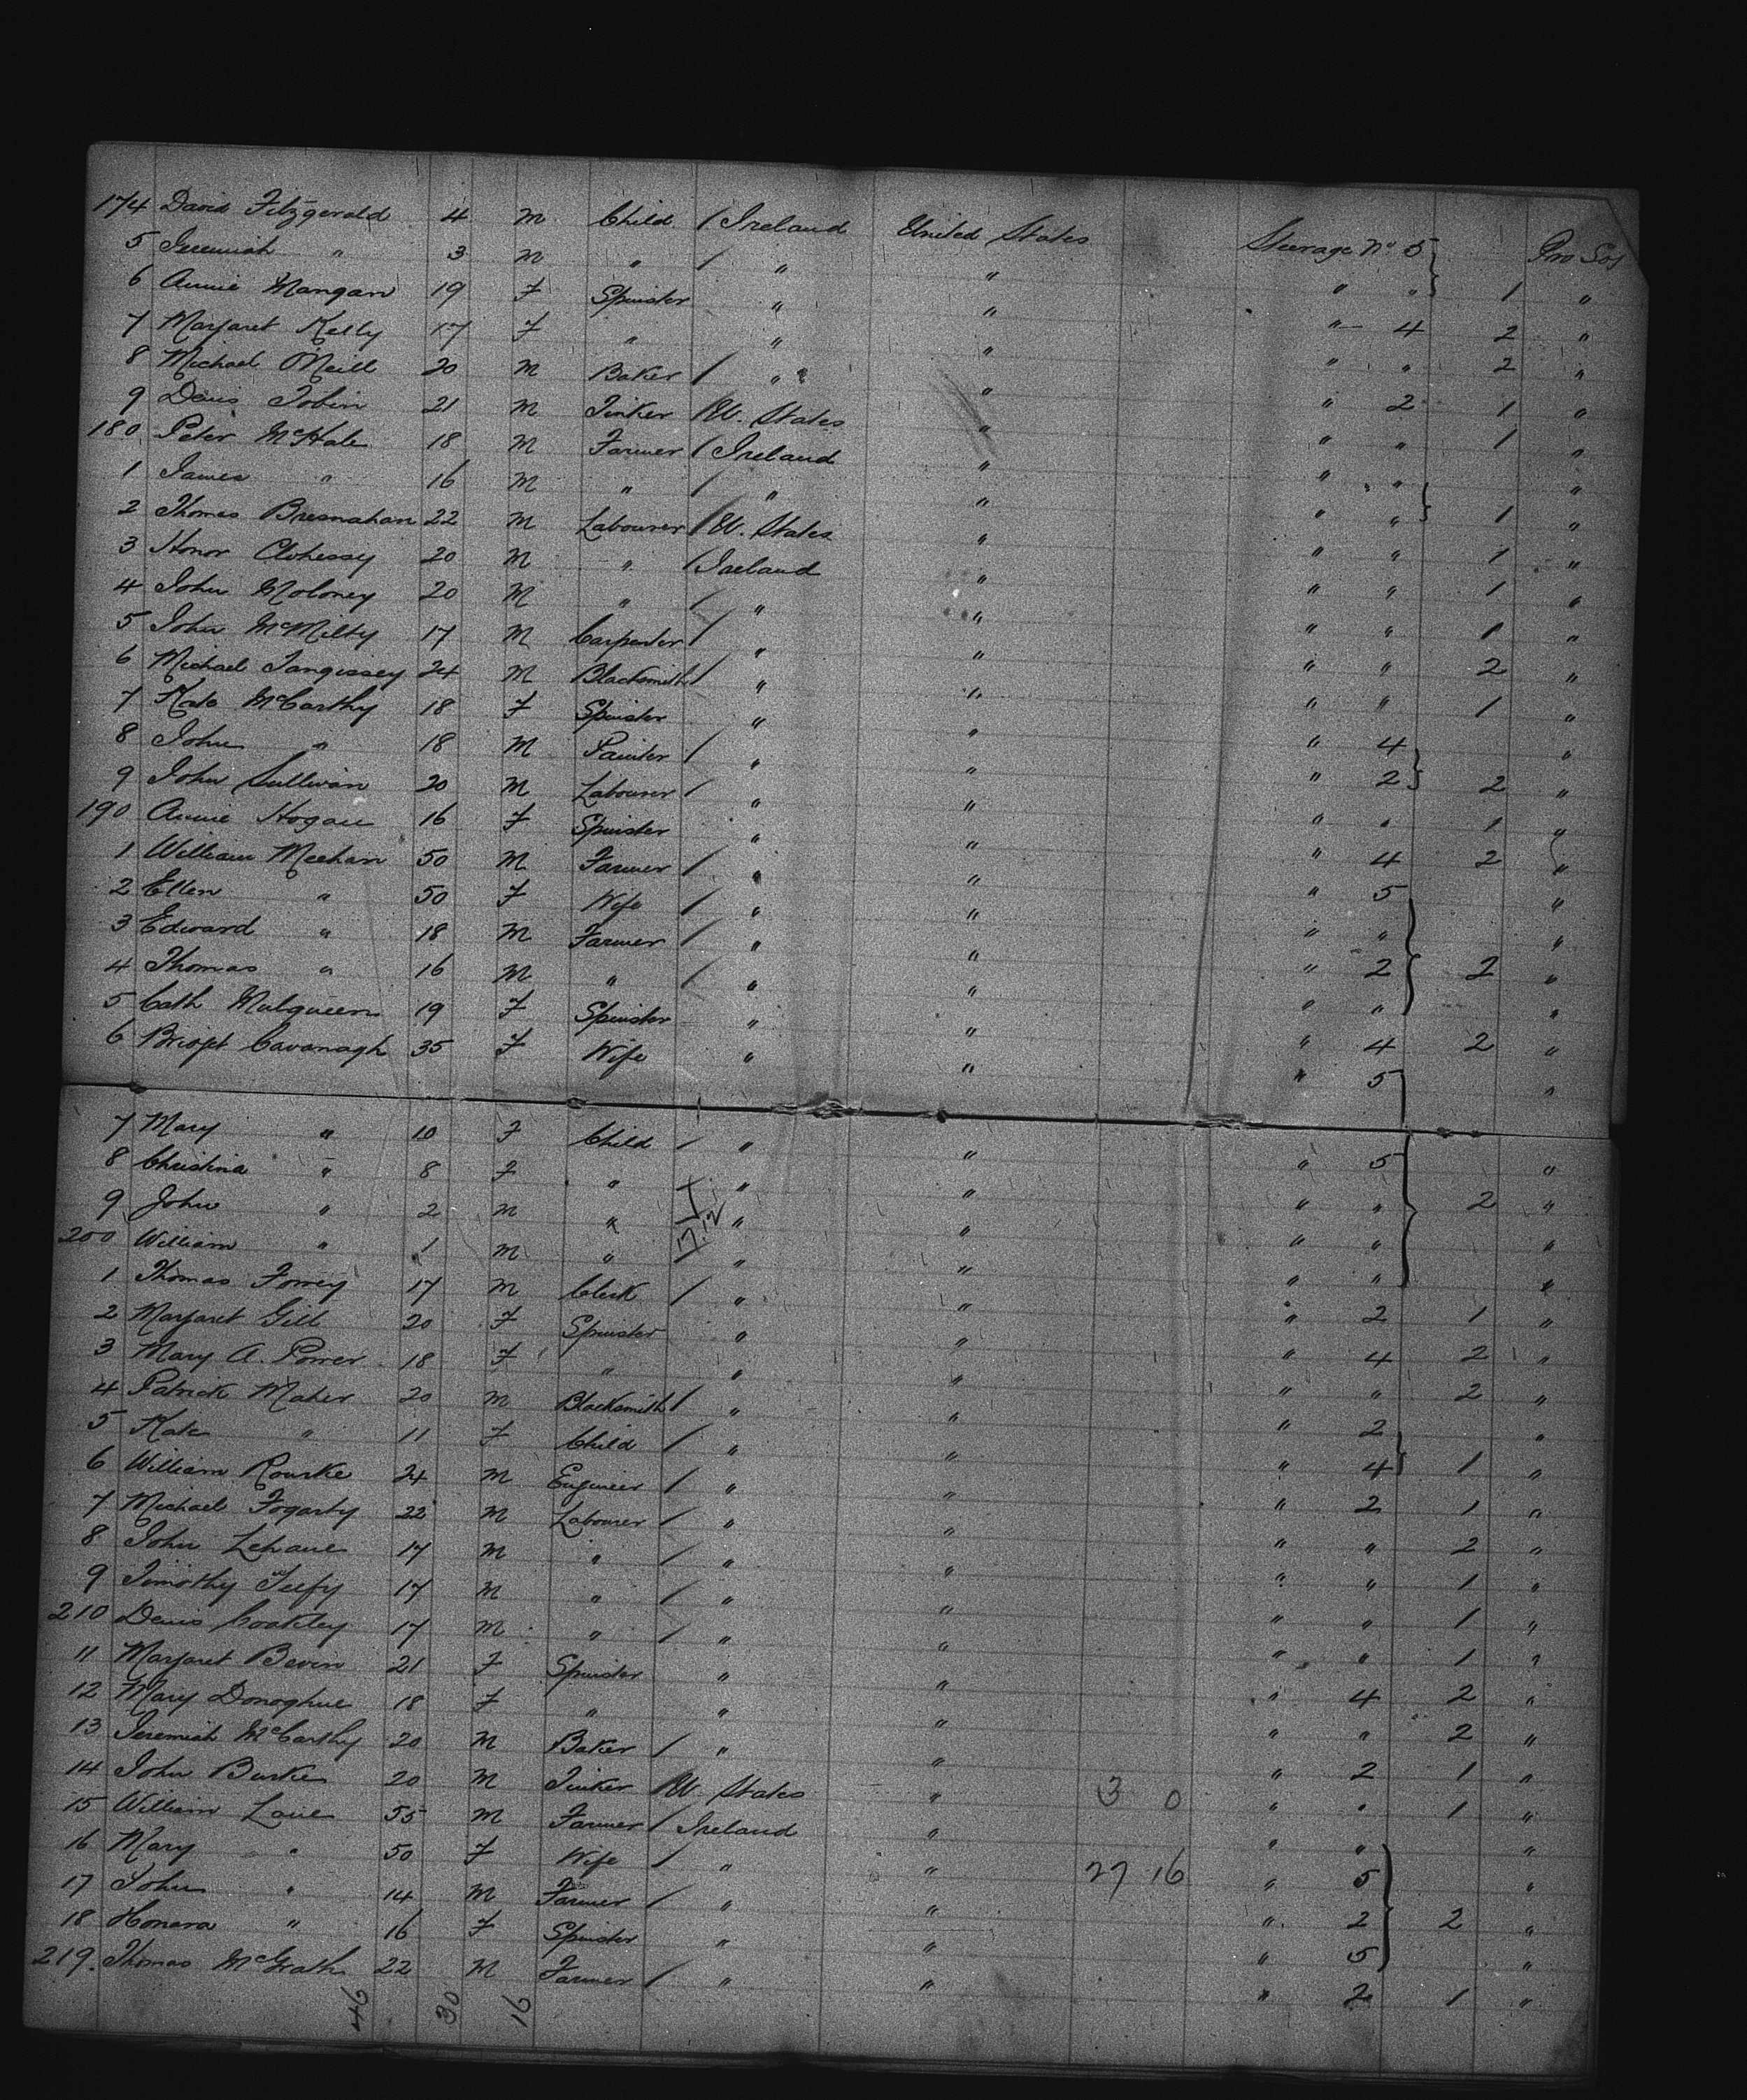 174 David Fitzgerald 4 M Child / Ireland United States Steerage No 5 Pro Soj
5 Jeremiah " 3 M " / " " " " 1 "
6 Annie Mangan 19 F Spinster " " " 4 2 "
7 Margaret Kelly 17 F " " " " " 2 "
8 Michael O'Neill 20 M Baker / " " " 2 1 "
9 Denis Tobin 21 M Tinker / U. States " " " 1 "
180 Peter McHale 18 M Farmer / Ireland " " " "
1 James " 16 M " / " " " " 1 "
2 Thomas Bresnahan 22 M Labourer / U. States " " " 1 "
3 Honor Clohessy 20 M " / Ireland " " " 1 "
4 John Moloney 20 M " / " " " " 1 "
5 John McMilty 17 M Carpenter / " " " " 2 "
6 Michael Tangissey 24 M Blacksmith / " " " " 1 "
7 Kate McCarthy 18 F Spinster " " " 4 "
8 John " 18 M Painter / " " " 2 2 "
9 John Sullivan 20 M Labourer / " " " " 1 "
190 Annie Hogan 16 F Spinster " " " 4 2 "
1 William Meehan 50 M Farmer / " " " 5 "
2 Ellen " 50 F Wife / " " " " "
3 Edward " 18 M Farmer / " " " 2 2 "
4 Thomas " 16 M " / " " " " "
5 Cath Mulqueen 19 F Spinster " " " 4 2 "
6 Bridget Cavanagh 35 F Wife " " " 5 "
7 Mary " 10 F Child / " " " 5 "
8 Christina " 8 F " / " " " " 2 "
9 John " 2 M " / " " " " "
200 William " 1 M " / " " " " "
1 Thomas Forrey 17 M Clerk / " " " 2 1 "
2 Margaret Gill 20 F Spinster " " " 4 2 "
3 Mary A. Power 18 F " " " " " 2 "
4 Patrick Maher 20 M Blacksmith / " " " 2 "
5 Kate " 11 F Child / " " " 4 1 "
6 William Rourke 24 M Engineer / " " " 2 1 "
7 Michael Fogarty 22 M Labourer / " " " " 2 "
8 John Lehane 17 M " / " " " " 1 "
9 Timothy Tuefy 17 M " / " " " " 1 "
210 Denis Coakley 17 M " / " " " " 1 "
11 Margaret Bevin 21 F Spinster " " " 4 2 "
12 Mary Donoghue 18 F " " " " " 2 "
13 Jeremiah McCarthy 20 M Baker / " " " 2 1 "
14 John Burke 20 M Tinker / U. States " 3 0 " " 1 "
15 William Lane 55 M Farmer / Ireland " " " "
16 Mary " 50 F Wife / " " 27 16 " 5 "
17 John " 14 M Farmer / " " " 2 2 "
18 Honora " 16 F Spinster " " " 5 "
219. Thomas McGrath 22 M Farmer / " " " 2 1 "
46 30 16